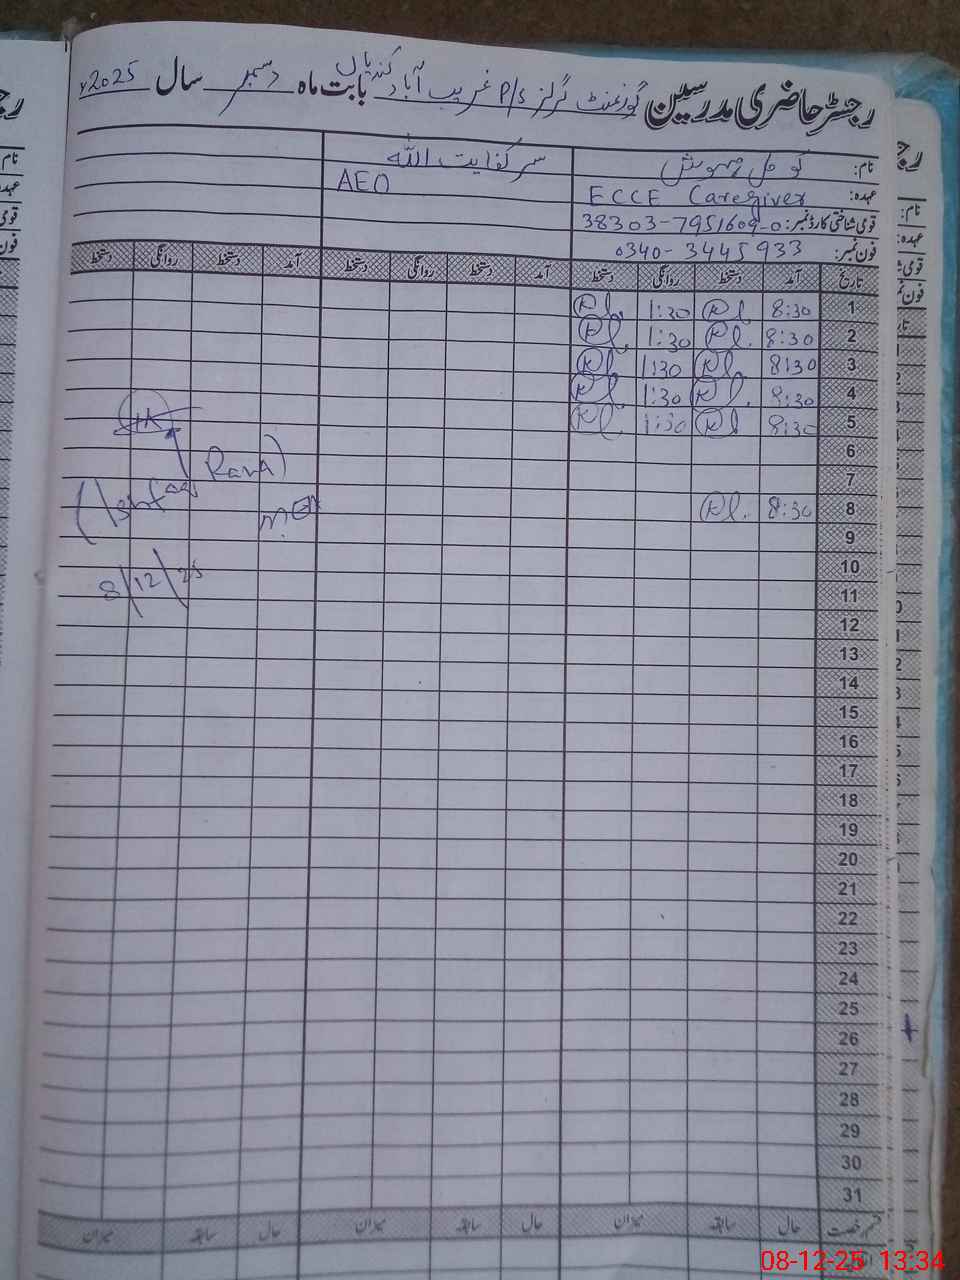 رجسٹر حاضری مدرسین گورنمنٹ گرلز P/S غریب آباد کندیاں بابت ماہ دسمبر سال 2025ء
نام: کومل مہوش سر کفایت اللہ
عہدہ: ECCE Caregiver AEO
قومی شناختی کارڈ نمبر: 38303-7951609-0
فون نمبر: 0340-3445933
تاریخ آمد دستخط روانگی دستخط آمد دستخط روانگی دستخط آمد دستخط روانگی دستخط
1 8:30 1:30
2 8:30 1:30
3 8:30 1:30
4 8:30 1:30
5 8:30 1:30
6
7
8 8:30
9
10
11
12
13
14
15
16
17
18
19
20
21
22
23
24
25
26
27
28
29
30
31
(Ishfaq Rana)
8/12/25
قسم رخصت حال سابقہ میزان حال سابقہ میزان حال سابقہ میزان
08-12-25 13:34